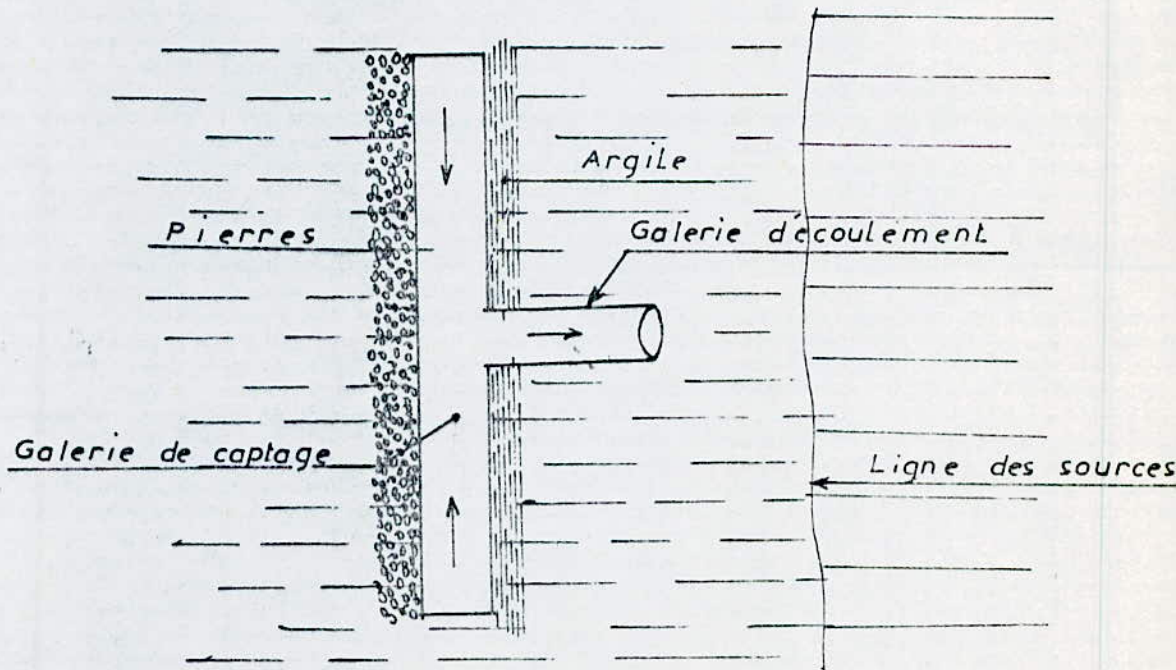 Argile
Pierres
Galerie d'écoulement
Galerie de captage
Ligne des sources